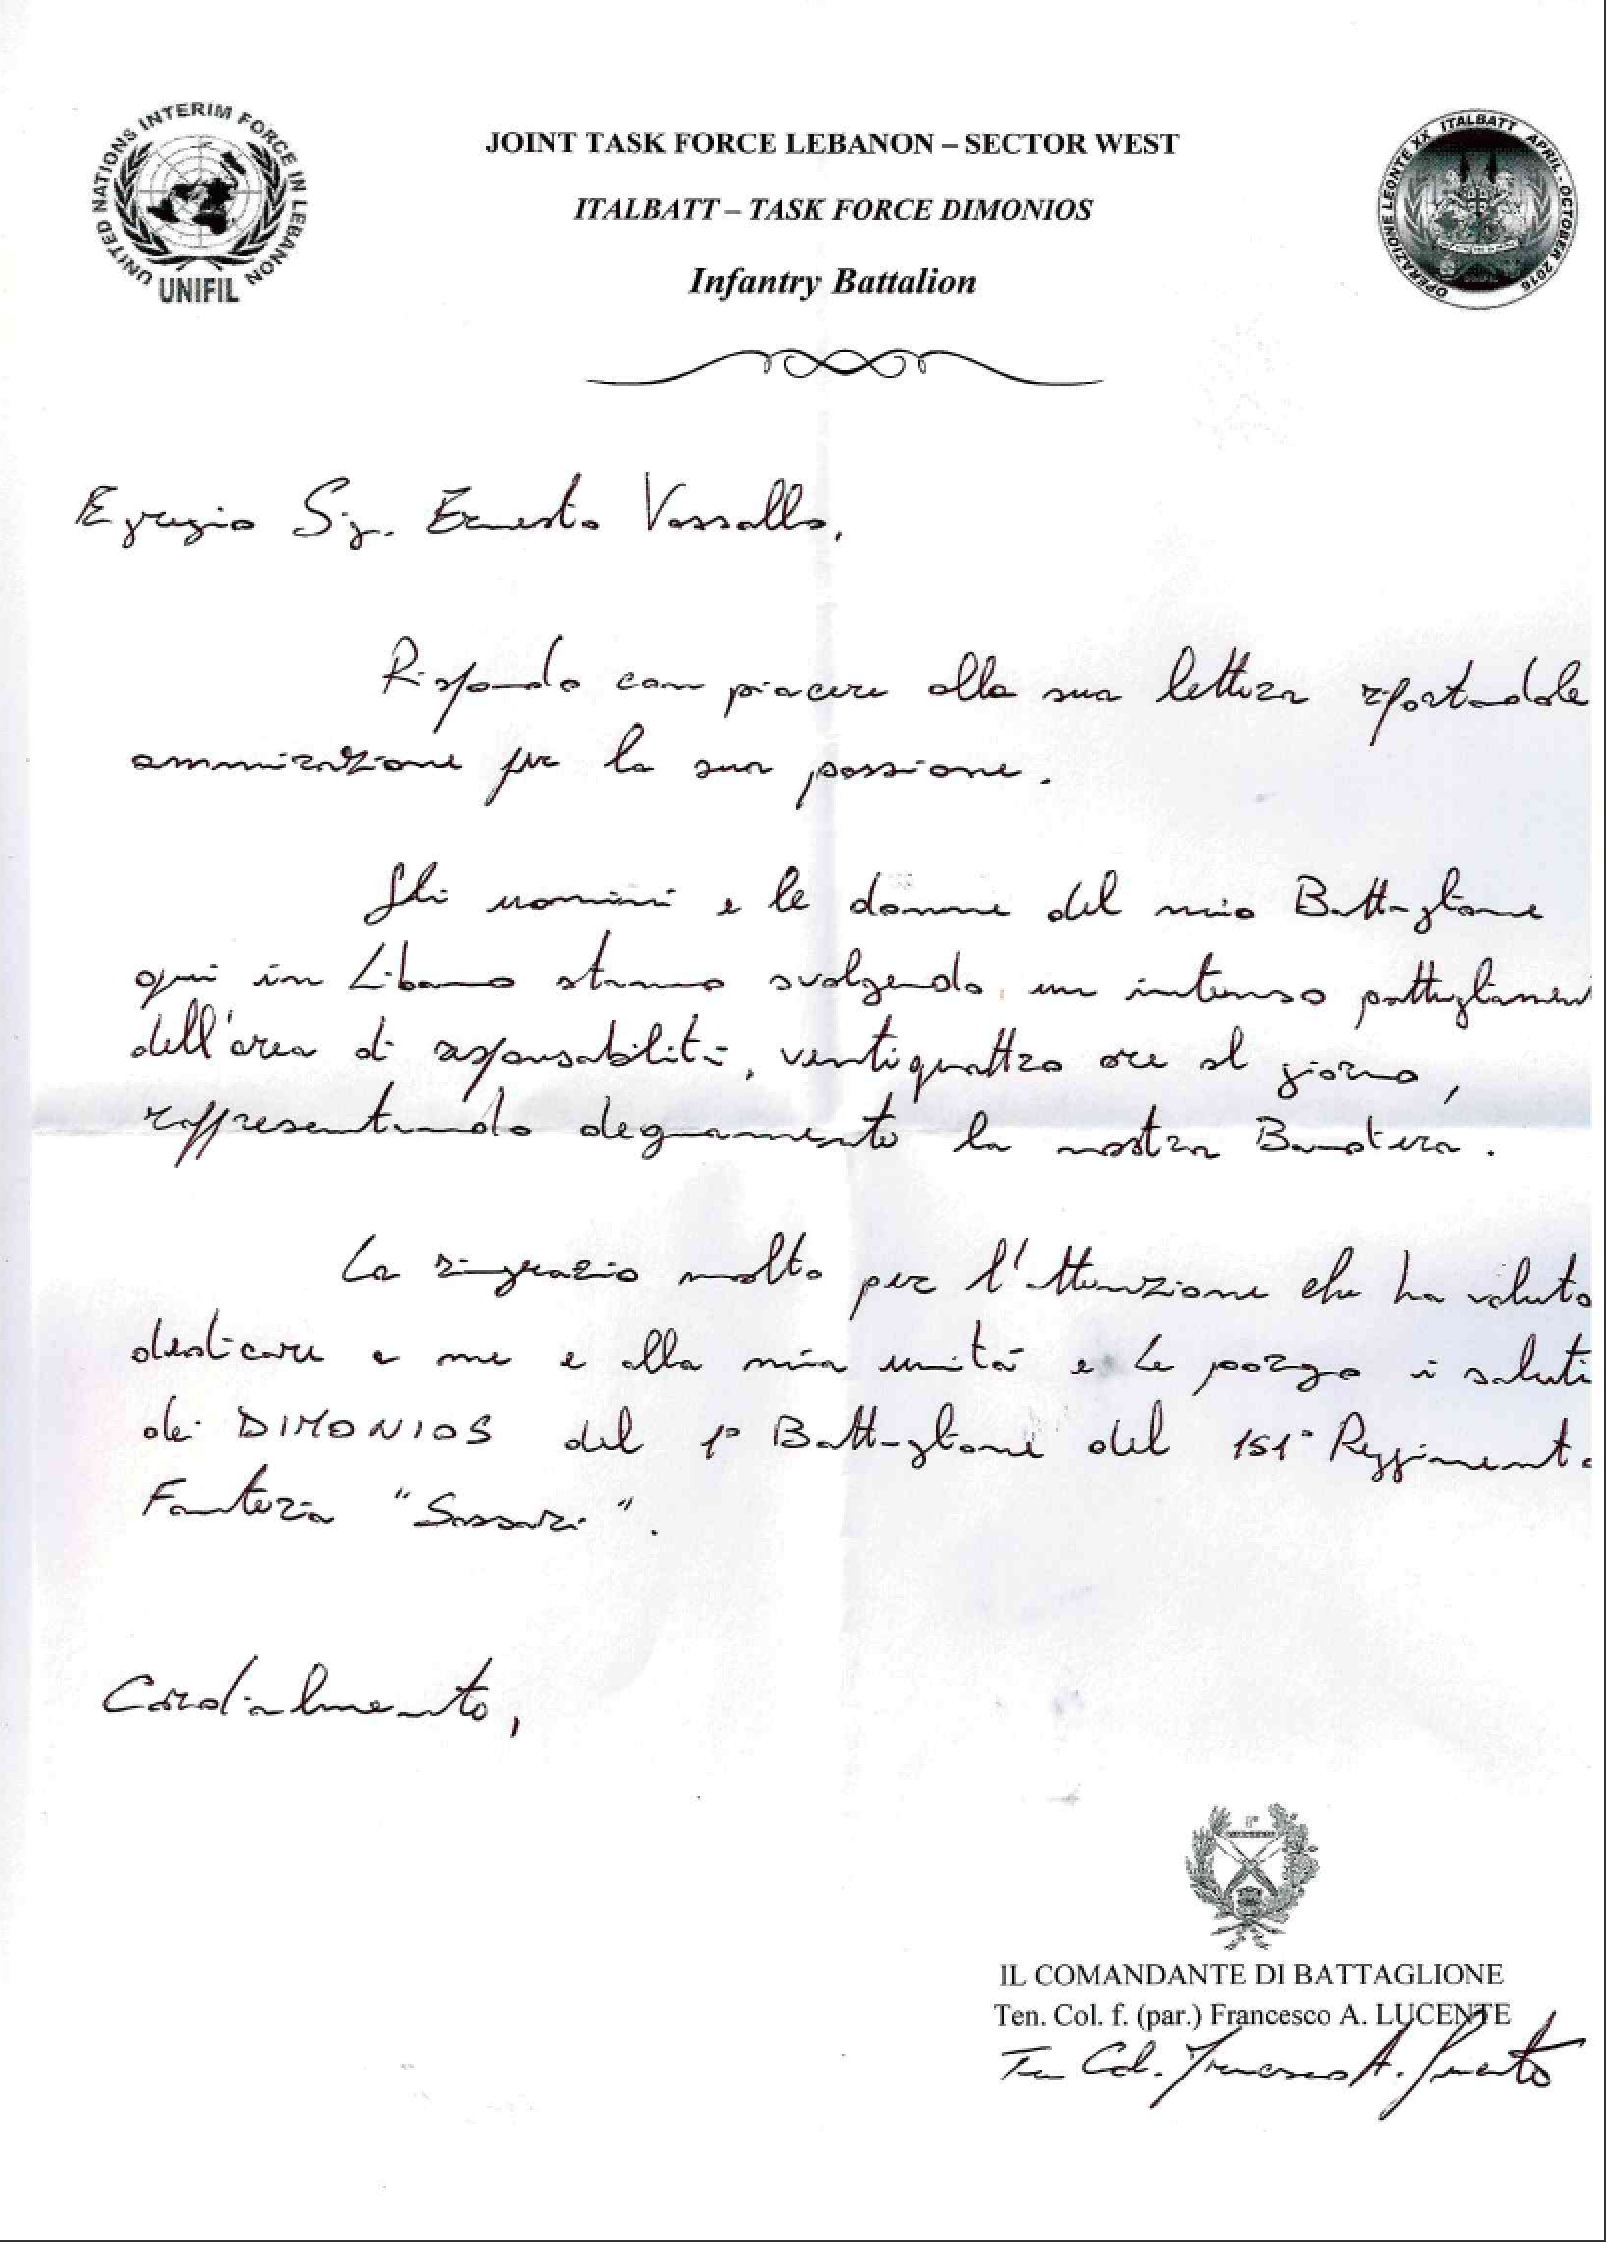 UNITED NATIONS INTERIM FORCE IN LEBANON
UNIFIL
JOINT TASK FORCE LEBANON – SECTOR WEST
ITALBATT – TASK FORCE DIMONIOS
Infantry Battalion
OPERAZIONE LEONTE XX ITALBATT APRIL - OCTOBER 2016
Egregio Sig. Ernesto Vassallo,
Rispondo con piacere alla sua lettera riportandole
ammirazione per la sua passione.
Gli uomini e le donne del mio Battaglione
qui in Libano stanno svolgendo un intenso pattugliamen
dell'area di responsabilità, ventiquattro ore al giorno,
rappresentando degnamente la nostra Bandiera.
La ringrazio molto per l'attenzione che ha voluto
dedicare a me e alla mia unità e Le porgo i saluti
dei DIMONIOS del 1° Battaglione del 151° Reggimento
Fanteria "Sassari".
Cordialmente,
IL COMANDANTE DI BATTAGLIONE
Ten. Col. f. (par.) Francesco A. LUCENTE
Ten Col. Francesco A. Lucente